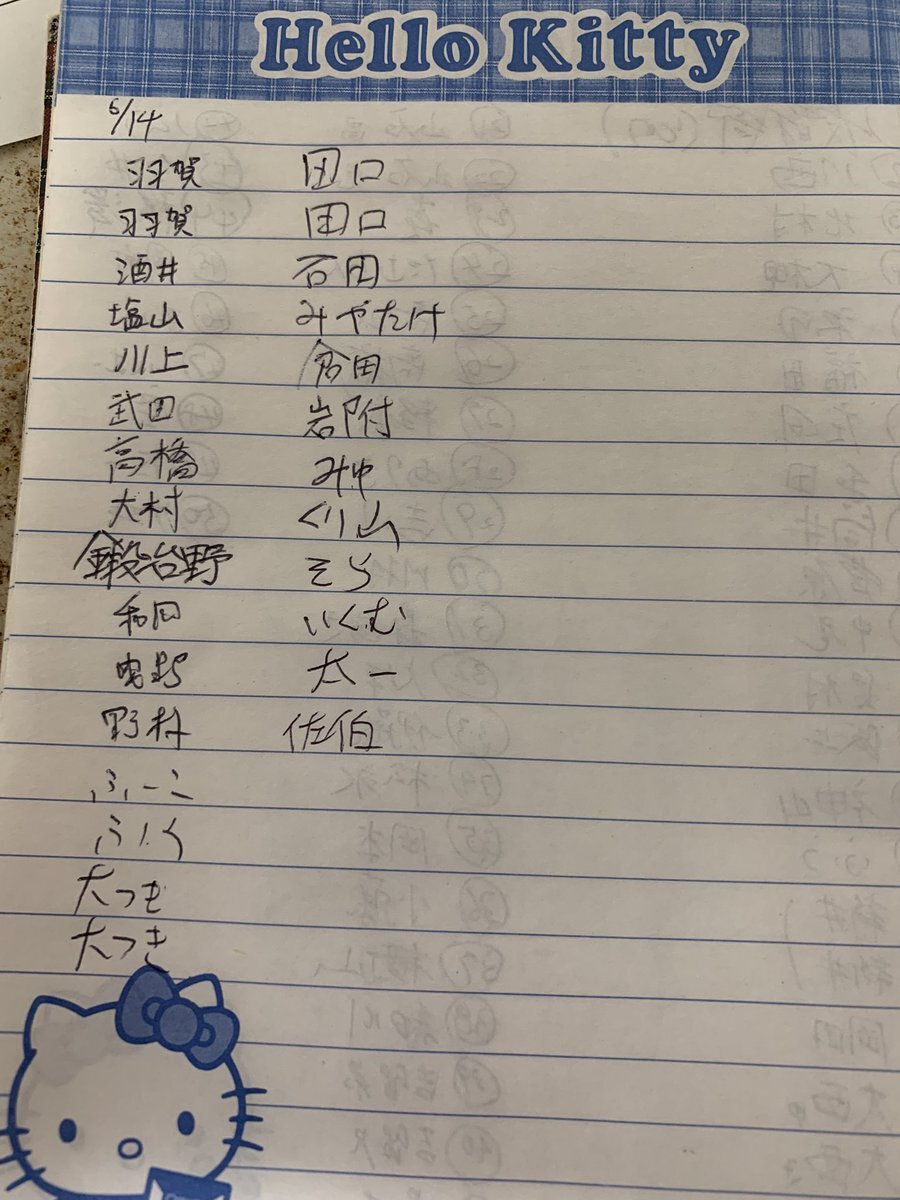 Hello Kitty
6/14
羽賀 田口
羽賀 田口
酒井 石田
塩山 みやたけ
川上 倉田
武田 岩附
高橋 みゆ
大村 くり山
鍛治野 そら
和田 いくむ
太一
野村 佐伯
ふーこ
ふく
大つき
大つき